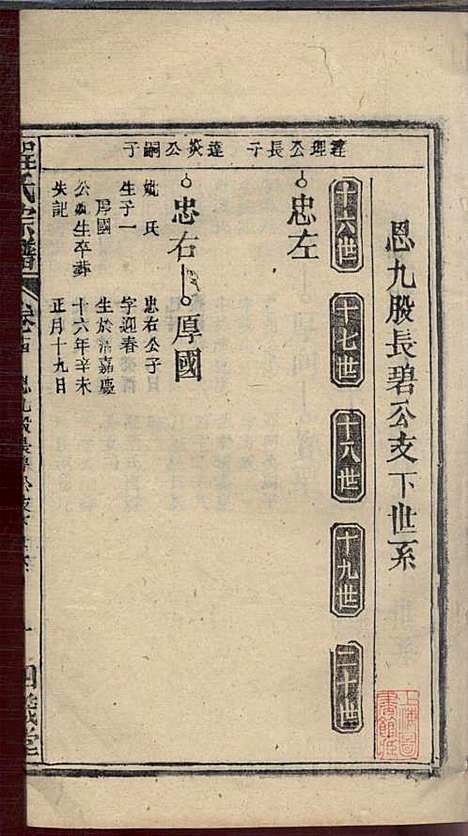 恩九股長碧公支下世系
十六世
十七世
十八世
十九世
二十世
達理公長子
忠左
達炎公嗣子
忠右
厚國
姚氏
生子一
厚國
公與生卒葬
失記
忠右公子
字迎春
生於清嘉慶
十六年辛未
正月十九日
氏宗譜
上海圖
書館藏